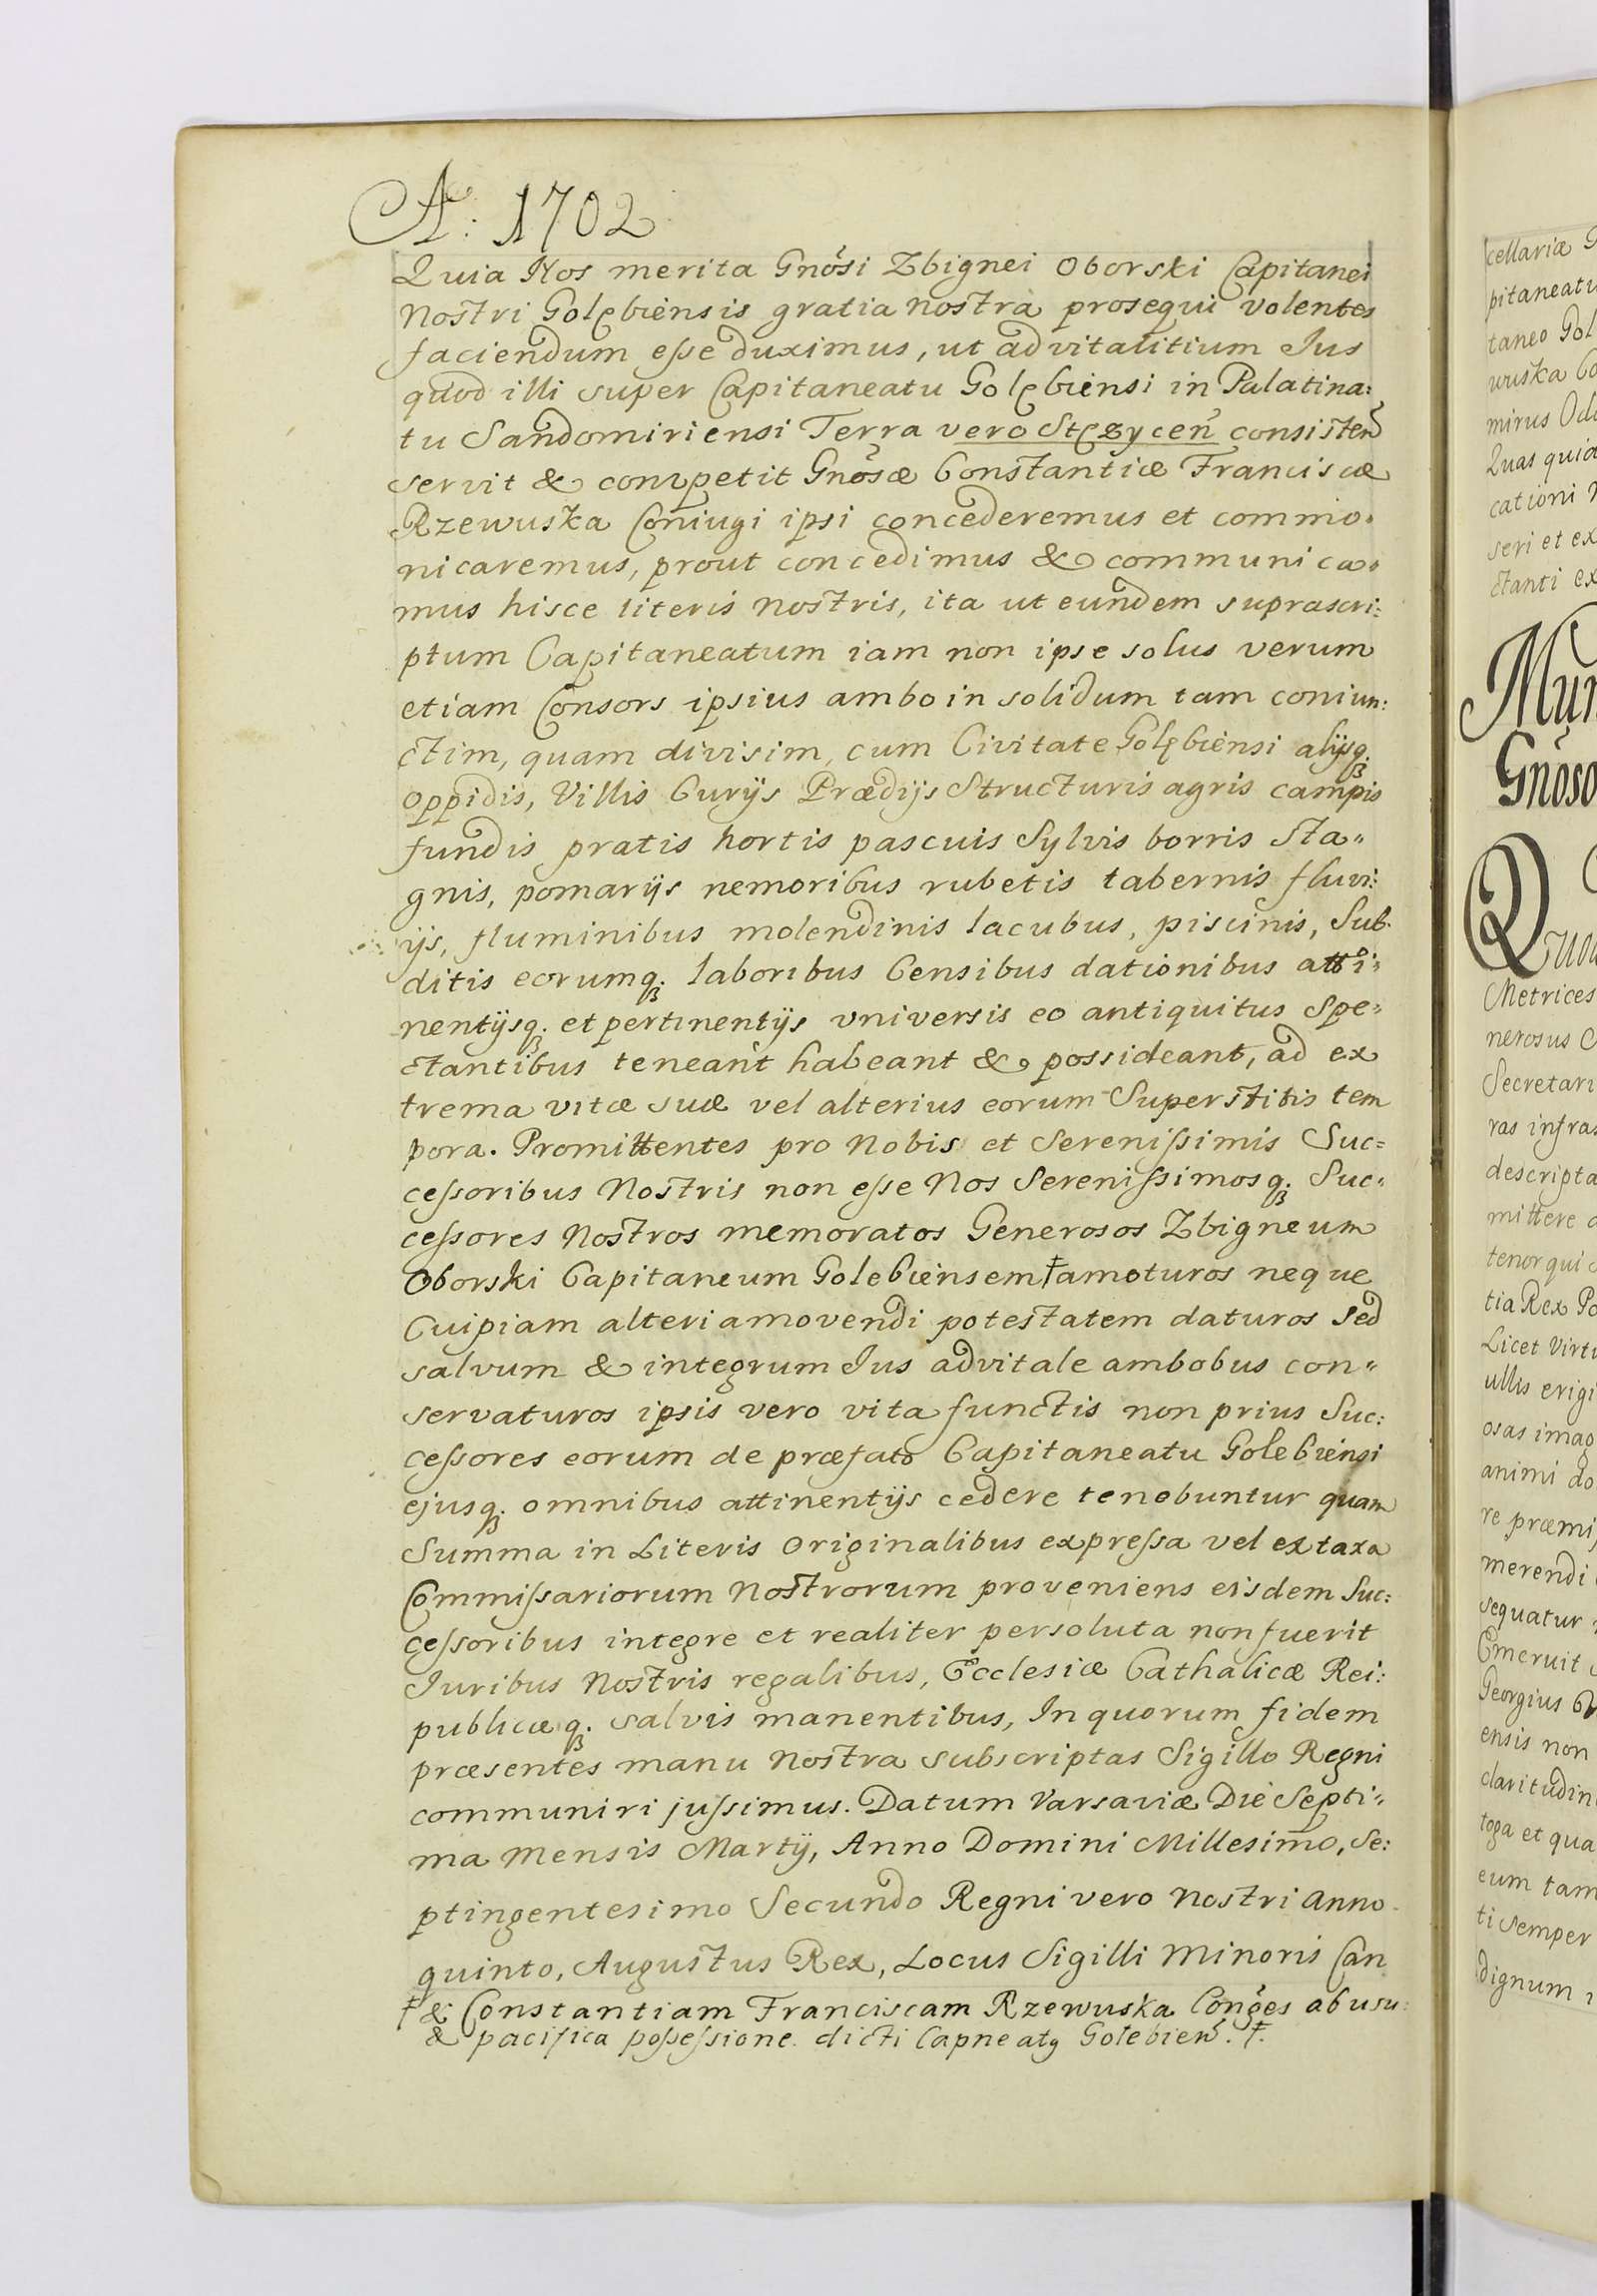 A: 1702
Quia Nos merita Gnosi Zbignei Oborski Capitanei
Nostri Golębiensis gratia nostra prosequi volentes
faciendum esse duximus, ut advitalitium Ius
quod illi super Capitaneatu Golębiensi in Palatina:
tu Sandomiriensi Terra vero Stęzycen consisten
servit & competit Gnosæ Constantiæ Franciscæ
Rzewuska Coniugi ipsi concederemus et commo-
nicaremus, prout concedimus & communica-
mus hisce literis nostris, ita ut eundem suprascri:
ptum Capitaneatum iam non ipse solus verum
etiam Consors ipsius ambo in solidum tam coniun:
ctim, quam divisim, cum Civitate Golębiensi alijsq;
oppidis, Villis Curijs Prædijs Structuris agris campis
fundis pratis hortis pascuis Sylvis borris Sta-
gnis, pomarijs nemoribus rubetis tabernis fluvi:
ijs, fluminibus molendinis lacubus, piscinis, Sub-
ditis eorumq; laboribus Censibus dationibus atti-
nentijsq; et pertinentijs universis eo antiquitus Spe-
ctantibus teneant habeant & possideant, ad ex
trema vitæ suæ vel alterius eorum Superstitis tem
pora. Promittentes pro Nobis et Serenissimis Suc=
cessoribus Nostris non esse Nos Serenissimosq; Suc-
cessores Nostros memoratos Generosos Zbigneum
Oborski Capitaneum Golebiensem ‡ amoturos neque
Cuipiam alteri amovendi potestatem daturos Sed
salvum & integrum Ius advitale ambobus con-
servaturos ipsis vero vita functis non prius Suc:
cessores eorum de præfato Capitaneatu Golebiensi
ejusq; omnibus attinentijs cedere tenebuntur quam
Summa in Literis Originalibus expressa vel ex taxa
Commissariorum Nostrorum proveniens eisdem Suc:
cessoribus integre et realiter persoluta non fuerit
Iuribus Nostris regalibus, Ecclesiæ Cathalicæ Rei:
publicæq; salvis manentibus, In quorum fidem
præsentes manu Nostra subscriptas Sigillo Regni
communiri jussimus. Datum Varsaviæ Die Septi-
ma Mensis Martij, Anno Domini Millesimo, Se:
ptingentesimo Secundo Regni vero Nostri Anno
quinto, Augustus Rex, Locus Sigilli Minoris Can
‡ & Constantiam Franciscam Rzewuska Conges ab usu:
& pacifica possessione dicti Capneatq Golebien. ‡.
cellariæ G
pitaneatu
taneo Gol
wuska Co
mirus Od
Quas quia
cationi
seri et ex
ctanti ex
Mun
Gnoso
Metrices
nerosus C
Secretari
ras infras
descripta
mittere
tenor qui
tia Rex Po
Licet Virtu
ullis erigi
osas imag
animi do
re præmi
merendi
sequatur
Emeruit
Georgius
ensis non
claritudin
toga et qua
eum tam
ti semper
dignum